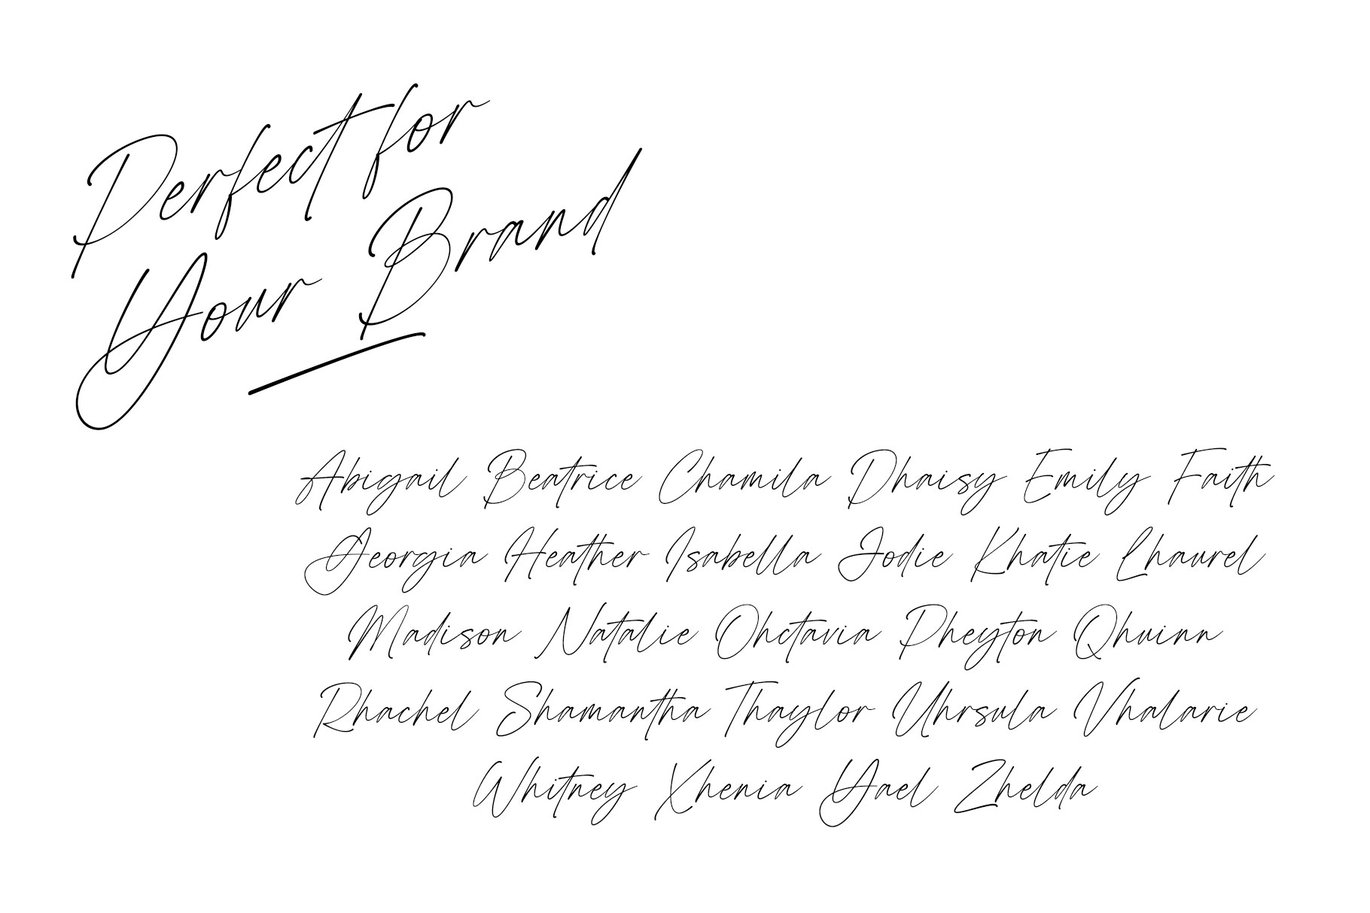 Perfect for
Your Brand
Abigail Beatrice Chamila Dhaisy Emily Faith
Georgia Heather Isabella Jodie Khatie Lhaurel
Madison Natalie Ohctavia Pheyton Qhuinn
Rhachel Shamantha Thaylor Uhrsula Vhalarie
Whitney Xhenia Yael Zhelda